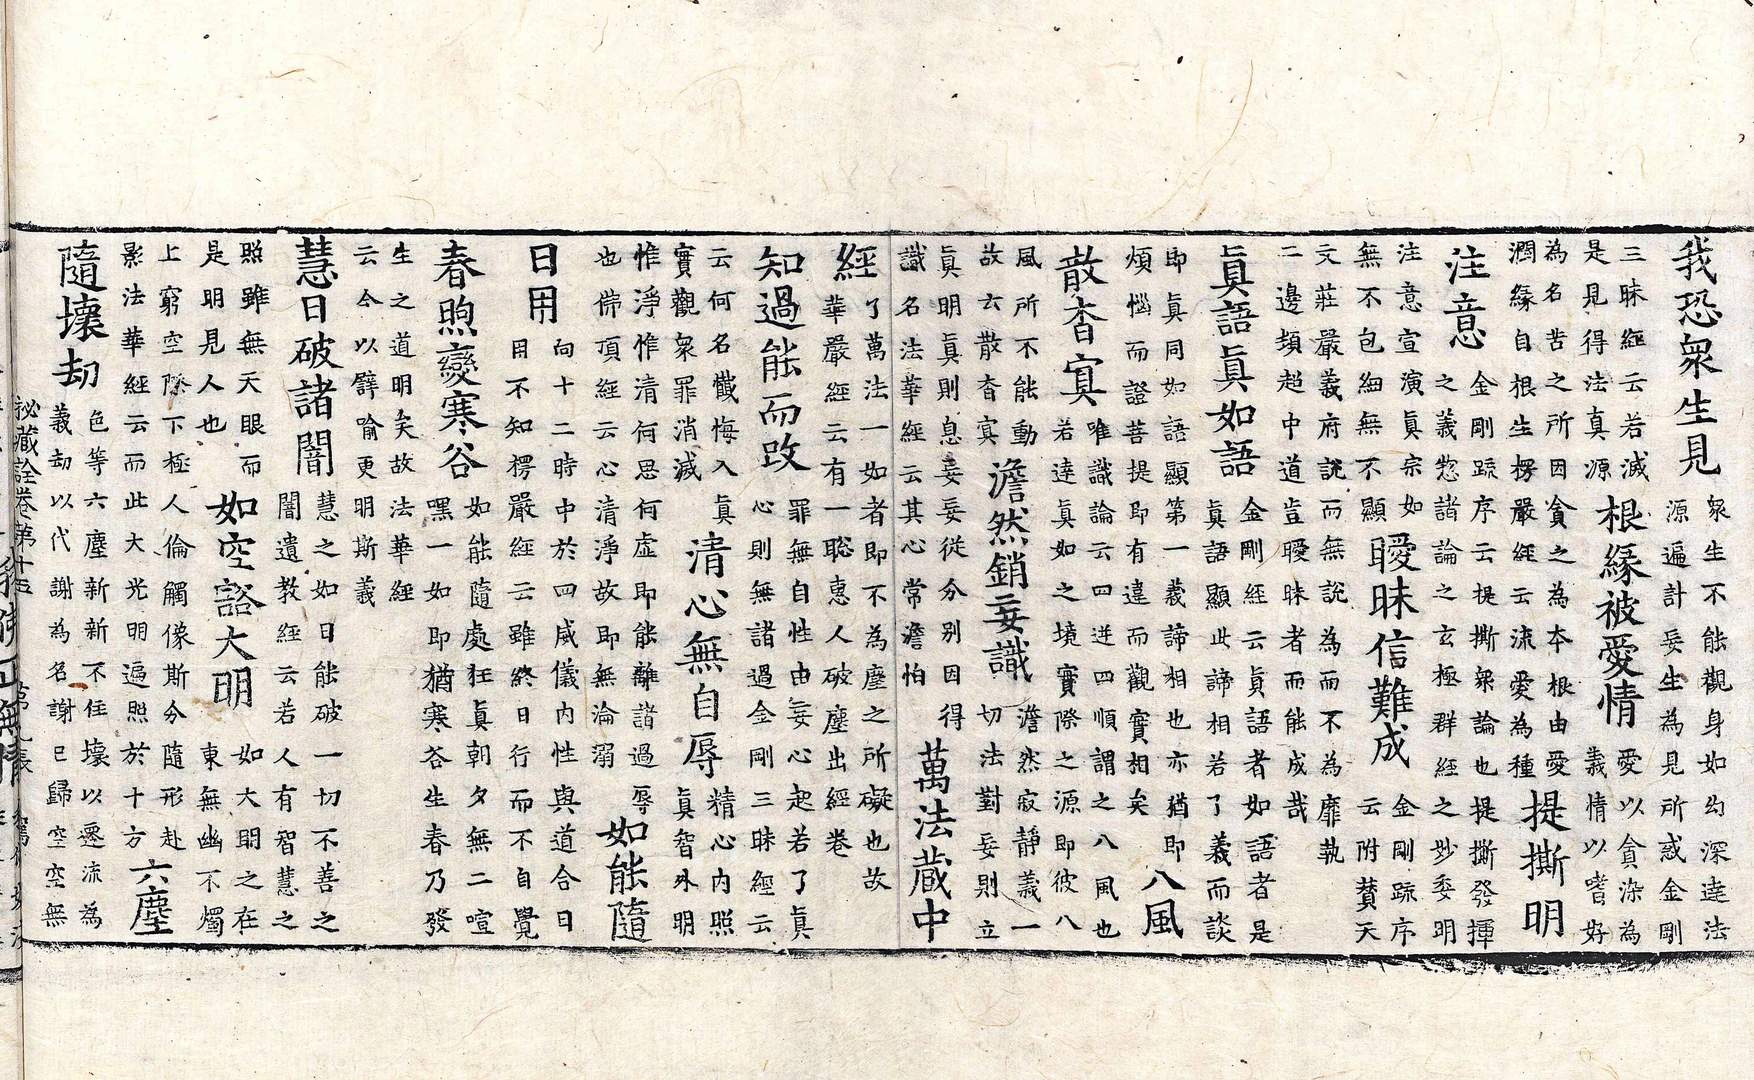 我恐衆生見衆生不能觀身如幻深達法源遍計妄生為見所惑金剛
三昧經云若滅是見得法真源根緣被愛情愛以貪染為義情以嗜好
為名苦之所因貪之為本根由愛潤緣自根生楞嚴經云流愛為種提撕明
注意金剛䟽序云提撕衆論也提撕發揮之義惣諸論之玄極群經之妙委明
注意宣演眞宗如無不包細無不顯曖昧信難成金剛䟽序云附賛天
文莊嚴義府說而無說為而不為靡執二邊頻超中道豈曖昧者而能成哉
眞語眞如語金剛經云眞語者如語者是眞語顯此諦相若了義而談
即眞同如語顯第一義諦相也亦猶即煩惱而證菩提即有違而觀實相矣八風
散杳寞唯識論云四逆四順謂之八風也若達眞如之境實際之源即彼八
風所不能動故云散杳寞澹然銷妄識澹然寂靜義一切法對妄則立
眞明眞則息妄妄從分別因得識名法華經云其心常澹怕萬法蔵中
經了萬法一如者即不為塵之所礙也故華嚴經云有一聡惠人破塵出經卷
知過能而改罪無自性由妄心起若了眞心則無諸過金剛三昧經云
云何名懺悔入眞實觀衆罪消滅清心無自辱精心内照眞智外明
惟淨惟清何思何虛即能離諸過辱也佛頂經云心清淨故即無淪溺如能隨
日用向十二時中於四威儀内性與道合日用不知楞嚴經云雖終日行而不自覺
春煦變寒谷如能隨處狂眞朝夕無二暄嘿一如即猶寒谷生春乃發
生之道明矣故法華經云今以譬喻更明斯義
慧日破諸闇慧之如日能破一切不善之闇遺教經云若人有智慧之
照雖無天眼而是明見人也如空谿大明如大明之在東無幽不燭
上窮空際下極人倫觸像斯分隨形赴影法華經云而此大光明遍照於十方六塵
隨壞劫色等六塵新新不住壞以遷流為義劫以代謝為名謝已歸空空無
祕藏詮卷第十五